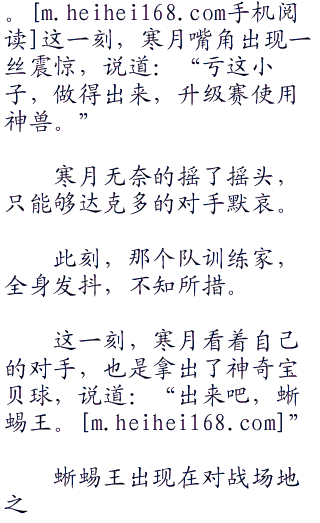 。[m.heihei168.com手机阅
读]这一刻，寒月嘴角出现一
丝震惊，说道：“亏这小
子，做得出来，升级赛使用
神兽。”
寒月无奈的摇了摇头，
只能够达克多的对手默哀。
此刻，那个队训练家，
全身发抖，不知所措。
这一刻，寒月看着自己
的对手，也是拿出了神奇宝
贝球，说道：“出来吧，蜥
蜴王。[m.heihei168.com]”
蜥蜴王出现在对战场地
之